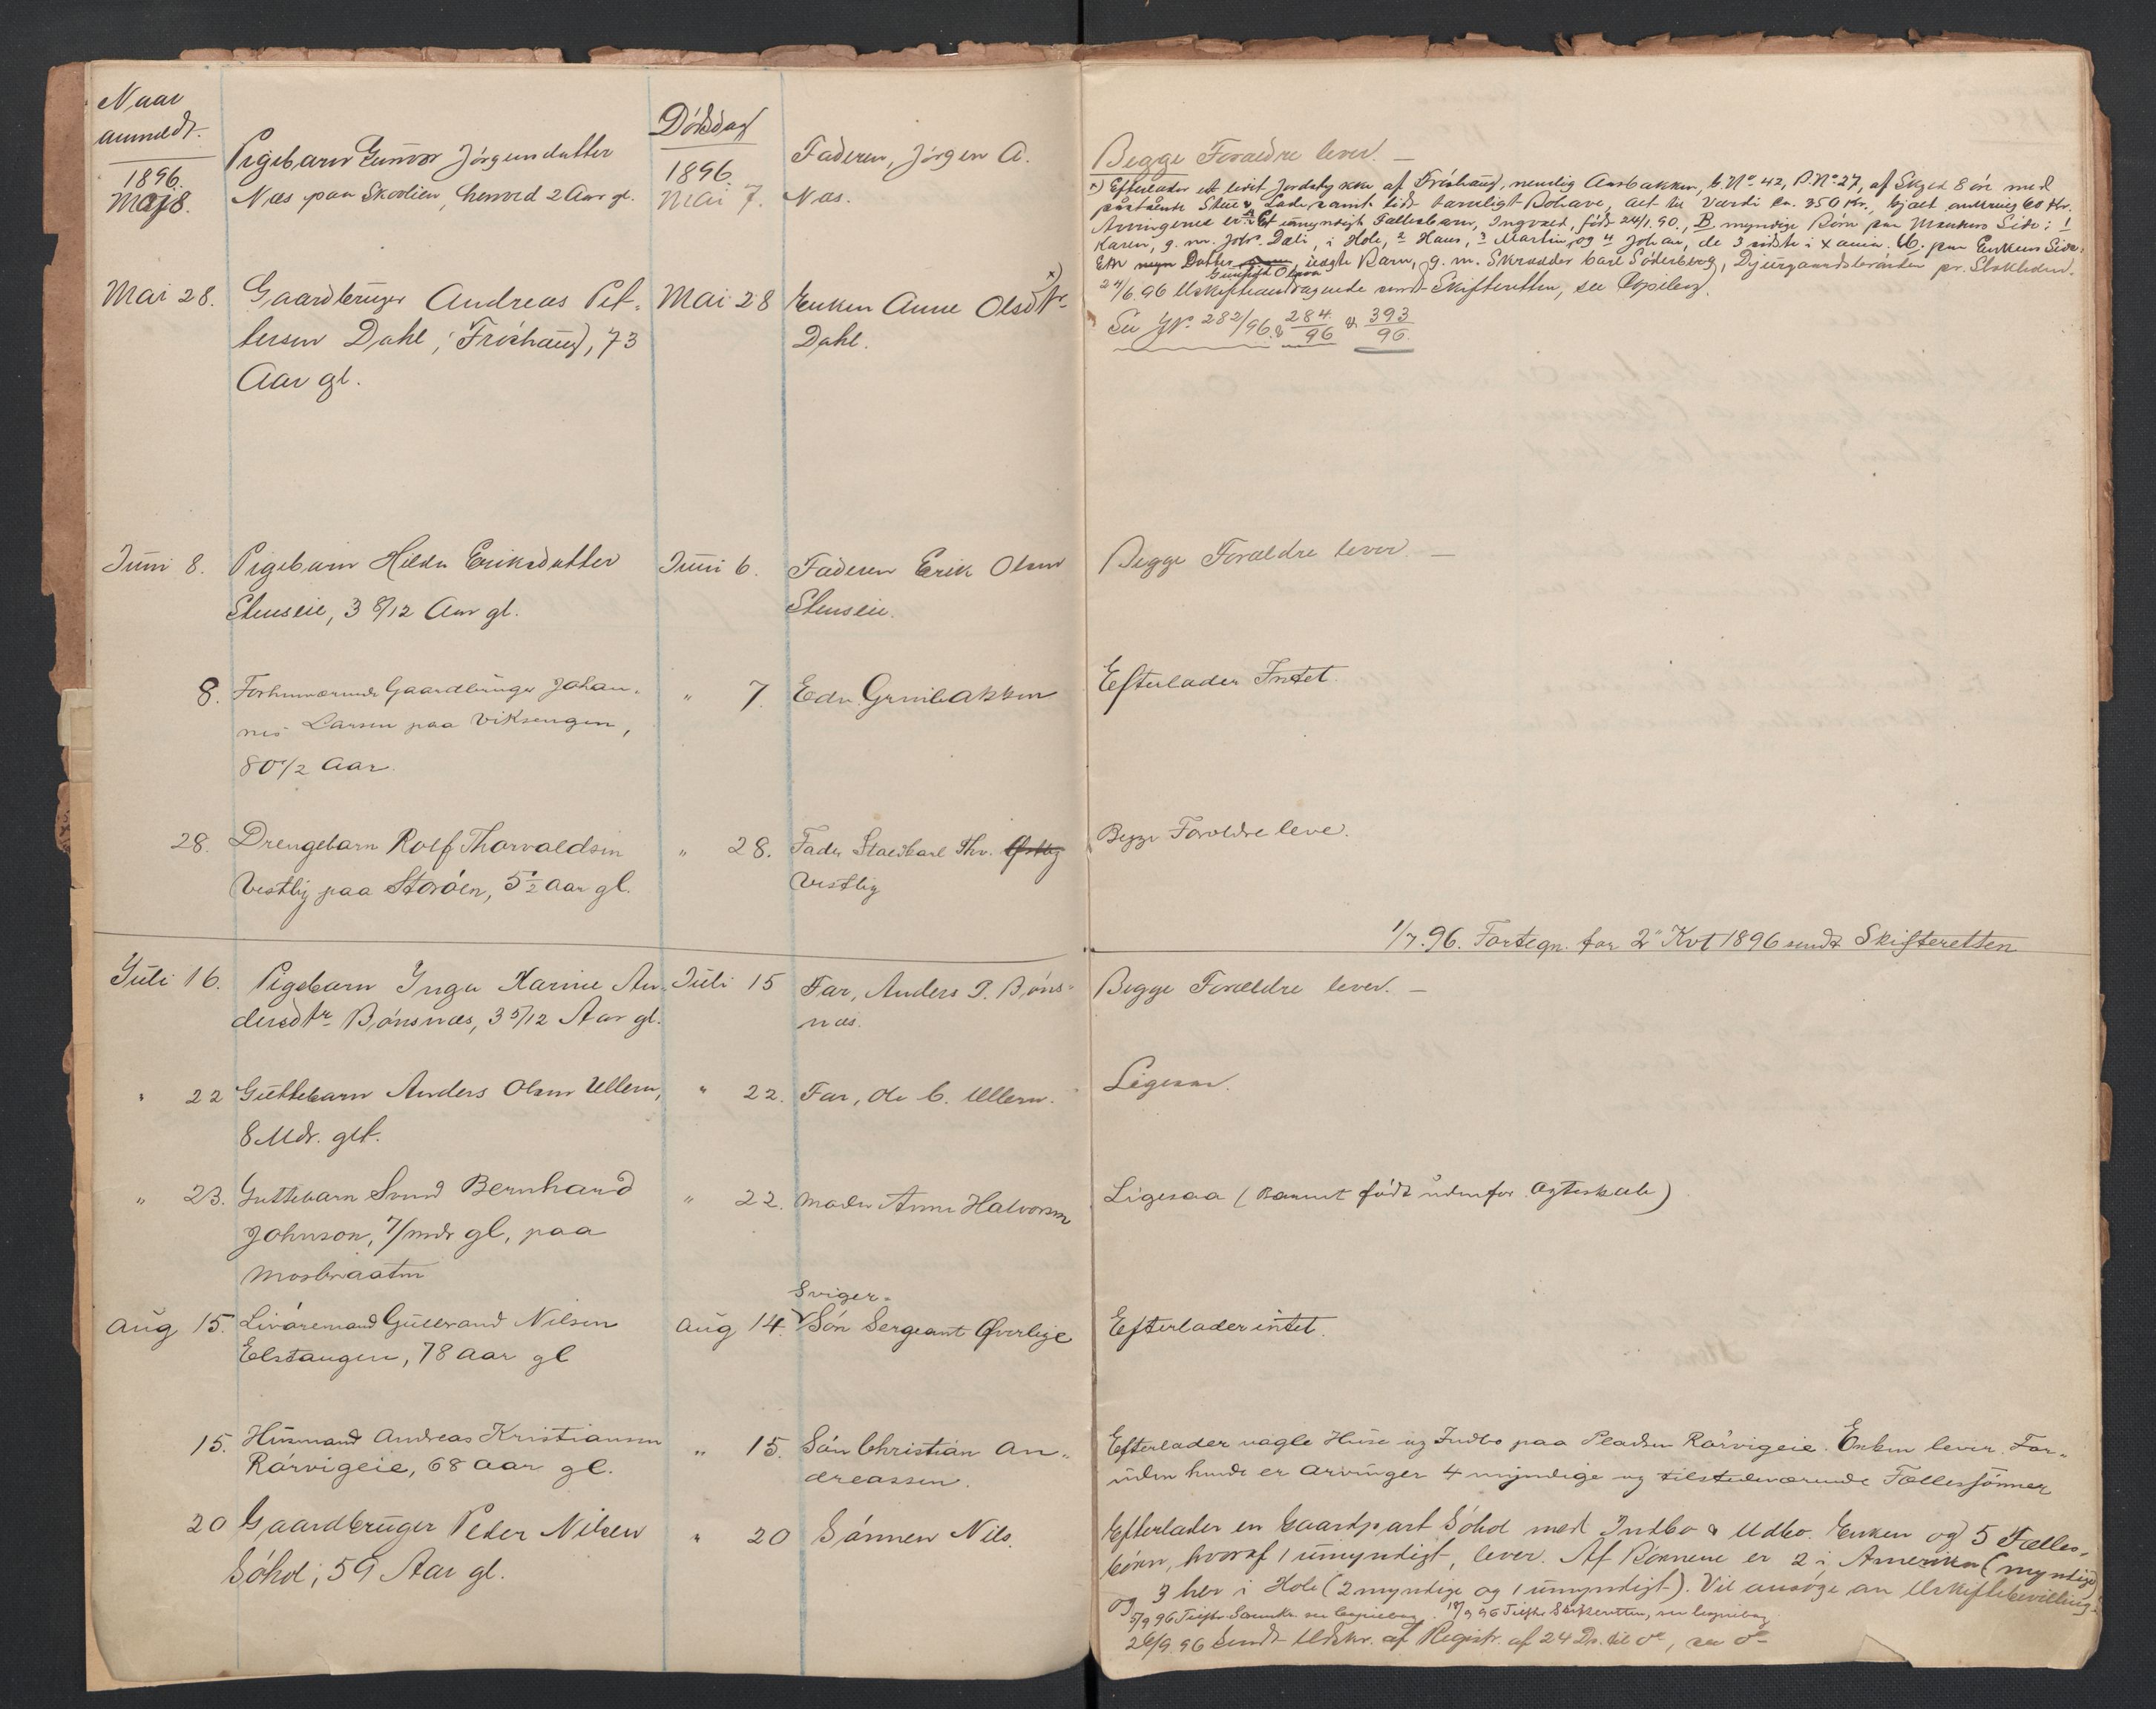 Naar
anmeldt.
Dödsdag
1896.
Mai 8.
Pigebarn Gunvor Jörgensdatter
Næs paa Skovlien, henved 2 Aar gl.
1896
Mai 7.
Faderen, Jörgen A.
Næs.
Begge Forældre lever. —
Mai 28.
Gaardbruger Andreas Pet-
tersen Dahl, Fröshaug, 73
Aar gl.
Mai 28
Enken Anne Olsdtr x)
Dahl.
x) Efterlader et lidet Jordstykke af Fröshaug, nemlig Aasbakken, G.No. 42, B.No 27, af Skyld 8 öre med
påstående Stue & Lade samt lidt tarveligt Bohave, alt til Værdi ca. 350 Kr., Gjæld omkring 60 Kr.
Arvingerne er A Et umyndigt Fællesbarn, Ingvald, född 24/1 90., B myndige Börn paa Mandens Side: 1
Karen, g. m. Johs. Dæli, i Hole, 2 Hans, 3 Martin og 4 Johan, de 3 sidste i Xania. C. paa Enkens Side:
Datter uægte Barn, g. m. Skrædder Carl Söderberg, Djurgaardsbrönden pr. Stokholm.
24/6 96 Uskifteandragende sendt Skifteretten, see Copibog.
Se JNo. 282/96 & 284/96 & 393/96.
Juni 8.
Pigebarn Hilda Eriksdatter
Stenseie, 3 8/12 Aar gl.
Juni 6.
Faderen Erik Olsen
Stenseie.
Begge Forældre lever. —
8.
Forhenværende Gaardbruger Johan-
nes Larsen paa Viksengen,
80 1/2 Aar.
" 7.
Edv. Grinibakken
Efterlader Intet.
28.
Drengebarn Rolf Thorvaldsen
Vestlig paa Storöen, 5 1/2 Aar gl.
" 28.
Fader Staldkarl Thv.
Vestlig
Begge Forældre leve.
1/7. 96. Fortegn. for 2' Kvt 1896 sendt Skifteretten
Juli 16.
Pigebarn Inga Karine An-
dersdtr Bönsnæs, 3 5/12 Aar gl.
Juli 15
Far, Anders P. Böns-
næs.
Begge Forældre lever. —
" 22
Guttebarn Anders Olsen Ullern,
8 Mdr. glt.
" 22.
Far, Ole C. Ullern.
Ligesaa.
" 23.
Guttebarn Svend Bernhard
Johnson, 7/mdr gl, paa
Mosbraaten
" 22.
Moder Anne Halvorsen
Ligesaa (Barnet född udenfor Ægteskab)
Aug 15.
Livöremand Gulbrand Nilsen
Elstangen, 78 Aar gl
Aug 14.
Sviger-
Sön Sergeant Øverbye
Efterlader intet.
15.
Husmand Andreas Kristiansen
Rörvigeie, 68 Aar gl.
" 15.
Sön Christian An-
dreassen.
Efterlader nogle Huse og Indbo paa Pladsen Rörvigeie. Enken lever. For-
uden hende er Arvinger 4 myndige og tilstedeværende Fællessönner
20
Gaardbruger Peder Nilsen
Söhol, 59 Aar gl.
" 20
Sönnen Nils.
Efterlader en Gaardpart Söhol med Indbo & Udbo. Enken og 5 Fælles-
börn, hvoraf 1 umyndigt, lever. Af Börnene er 2 i Amerika (myndige)
og 3 her i Hole (2 myndige og 1 umyndigt). Vil ansöge om Uskiftebevilling.
5/9 96 Tilskr. see Copiebog. 18/9 96 Tilskr Skifteretten, see Copiebog.
26/9 96 Sendt Udskr. af Registr. af 24 Ds. til do, see do